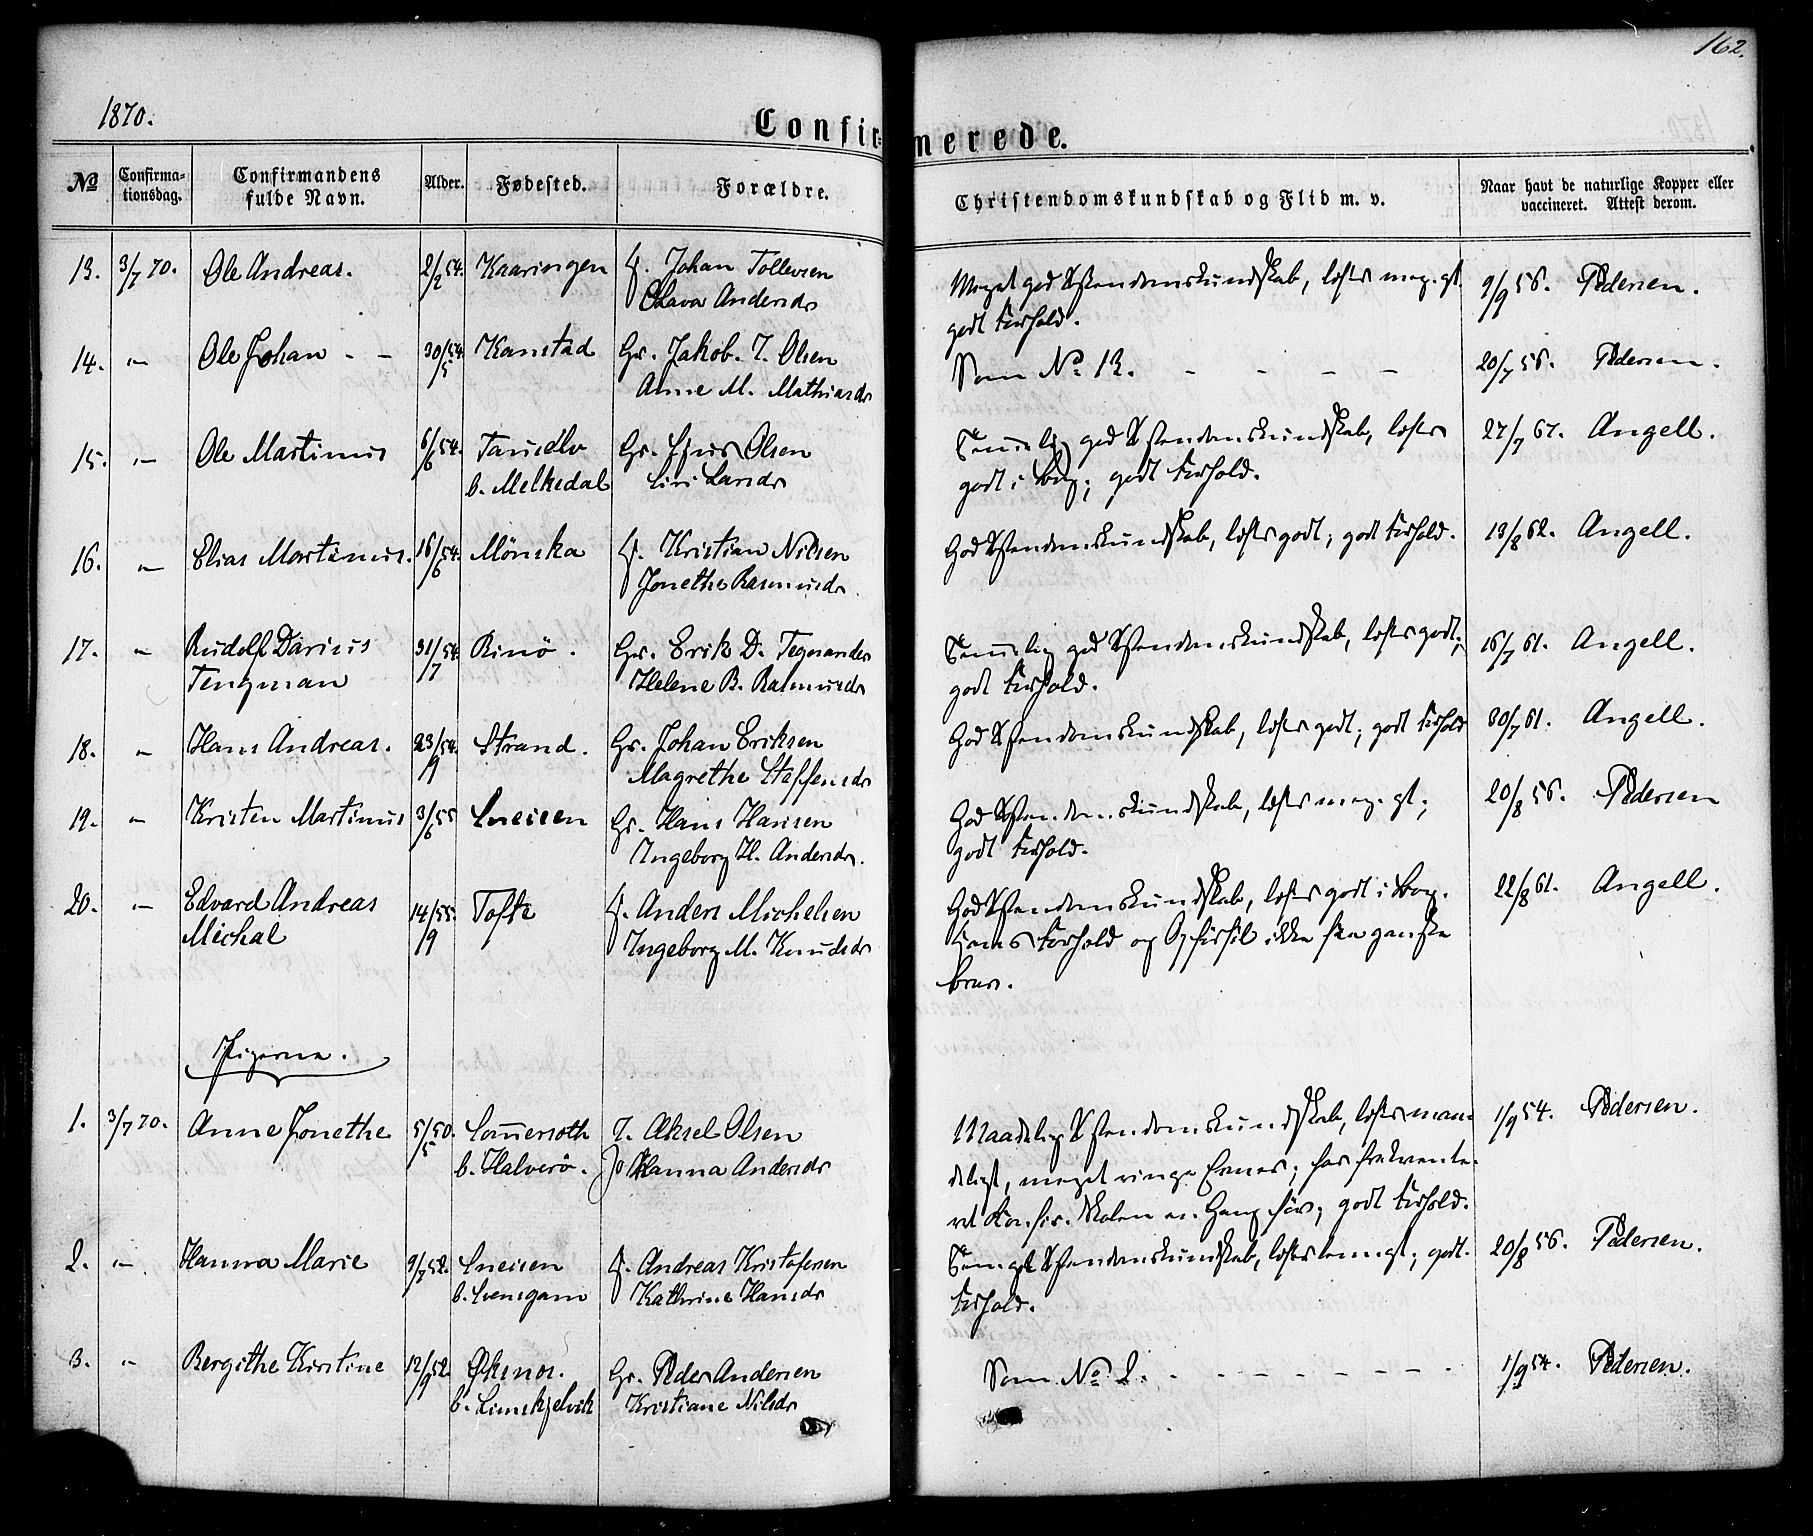 162.
1870.
Confirmerede.
No
Confirmationsdag.
Confirmandens fulde Navn.
Alder.
Fødested.
Forældre.
Christendomskundskab og Flid m. v.
Naar havt de naturlige Kopper eller vaccineret. Attest derom.
13. 3/7 70. Ole Andreas. 2/2 54. Kaaringen F. Johan Tollevsen
Olava Andersdr
Meget god Xstendomskundskab, læser meg. gt,
godt Forhold.
9/9 56. Pedersen.
14. -"- Ole Johan - - 30/5 54 Kanstad Gr. Jakob. J. Olsen
Anne M. Mathiasdr
Som No 13. - - - -
20/7 56. Pedersen.
15. -"- Ole Martinus 6/6 54.
b. Melkedal
Gr. Olsen
Siri Larsdr
Temelig god Xstendomskundskab, læser
godt i Bog; godt Forhold.
27/7 67. Angell.
16. " Elias Martinus. 16/6 54. Mönska F. Kristian Nilsen
Jonethe Rasmusdr
God Xstendomskundskab, læser godt; godt Forhold.
13/8 62. Angell.
17. " Rudolf Darius
Tengman
31/7 54. Rinö. Gr. Erik D. Tegmander
Helene B. Rasmusdr
Temelig god Xstendomskundskab, læser godt;
godt Forhold.
16/7 61. Angell.
18. " Hans Andreas. 23/9 54. Strand. Gr. Johan Eriksen
Magrethe Steffensdr
God Xstendomskundskab, læser godt; godt Forhold
30/7 61. Angell.
19. " Kristen Martinus 3/6 55 Sneisen Gr. Hans Hansen
Ingeborg H. Andersdr.
God Xstendomskundskab, læser meg. gt;
godt Forhold.
20/8 56. Pedersen
20. -"- Edvard Andreas
Michal
14/9 55. Tofte F. Anders Michelsen
Ingeborg M. Knudsdr
God Xstendomskundskab, læser godt i Bog.
Hans Forhold og Opførsel ikke saa ganske
brav.
22/8 61. Angell.
Pigerne.
1. 3/7 70. Anne Jonethe 5/5 50. Sommersæth
b. Halverö.
Aksel Olsen
Hanna Andersdr
Maadelig Xstendomskundskab, læser maa-
deligt, meget ringe Evner; har frekvente-
ret Konfir. Skolen en Gang før; godt Forhold.
1/9 54. Pedersen.
2. -"- Hanna Marie 9/7 52. Sneisen
b. Svensgam
F. Andreas Kristofersen
Kathrine Hansdr
Temgl Xstendomskundskab, læser temgt; godt
Forhold.
20/8 56. Pedersen.
3. -"- Bergithe Kirstine 12/9 52. Øksnes.
Gr. Peder Andersen
Kristiane Nilsdr
Som No 2. - - - - - - - -
1/9 54. Pedersen.